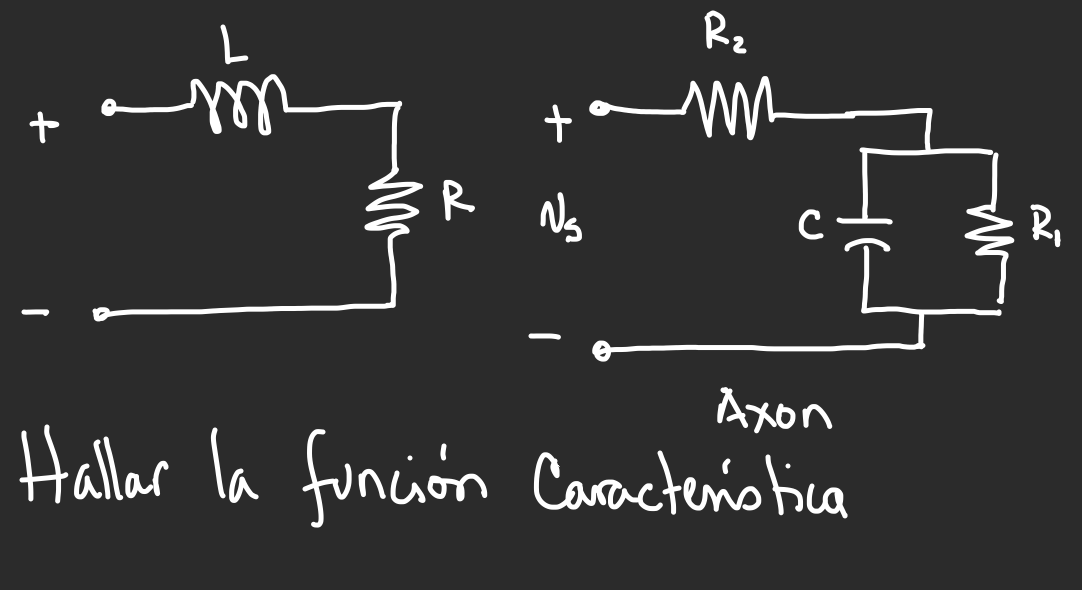 L
R
+
-
R₂
+
Ns
C
R₁
-
Axon
Hallar la función Característica